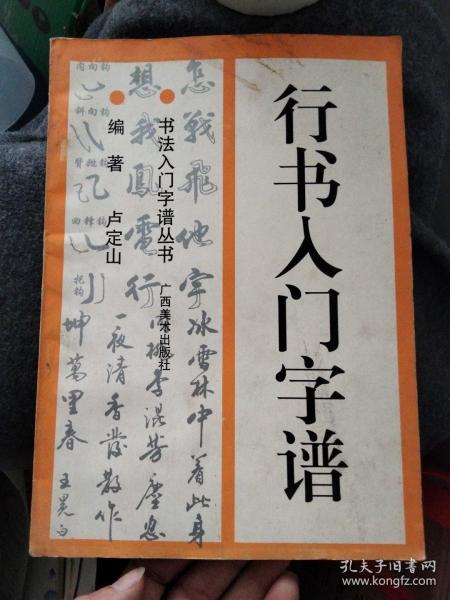 行书入门字谱
书法入门字谱丛书
广西美术出版社
编著 卢定山
怎戰飛他宇
冰雪林中着此身
想我鳳電行
桃李混芳塵忽
一夜清香發散作
坤萬里春
王冕白
斜向钩
孔夫子旧书网
www.kongfz.com